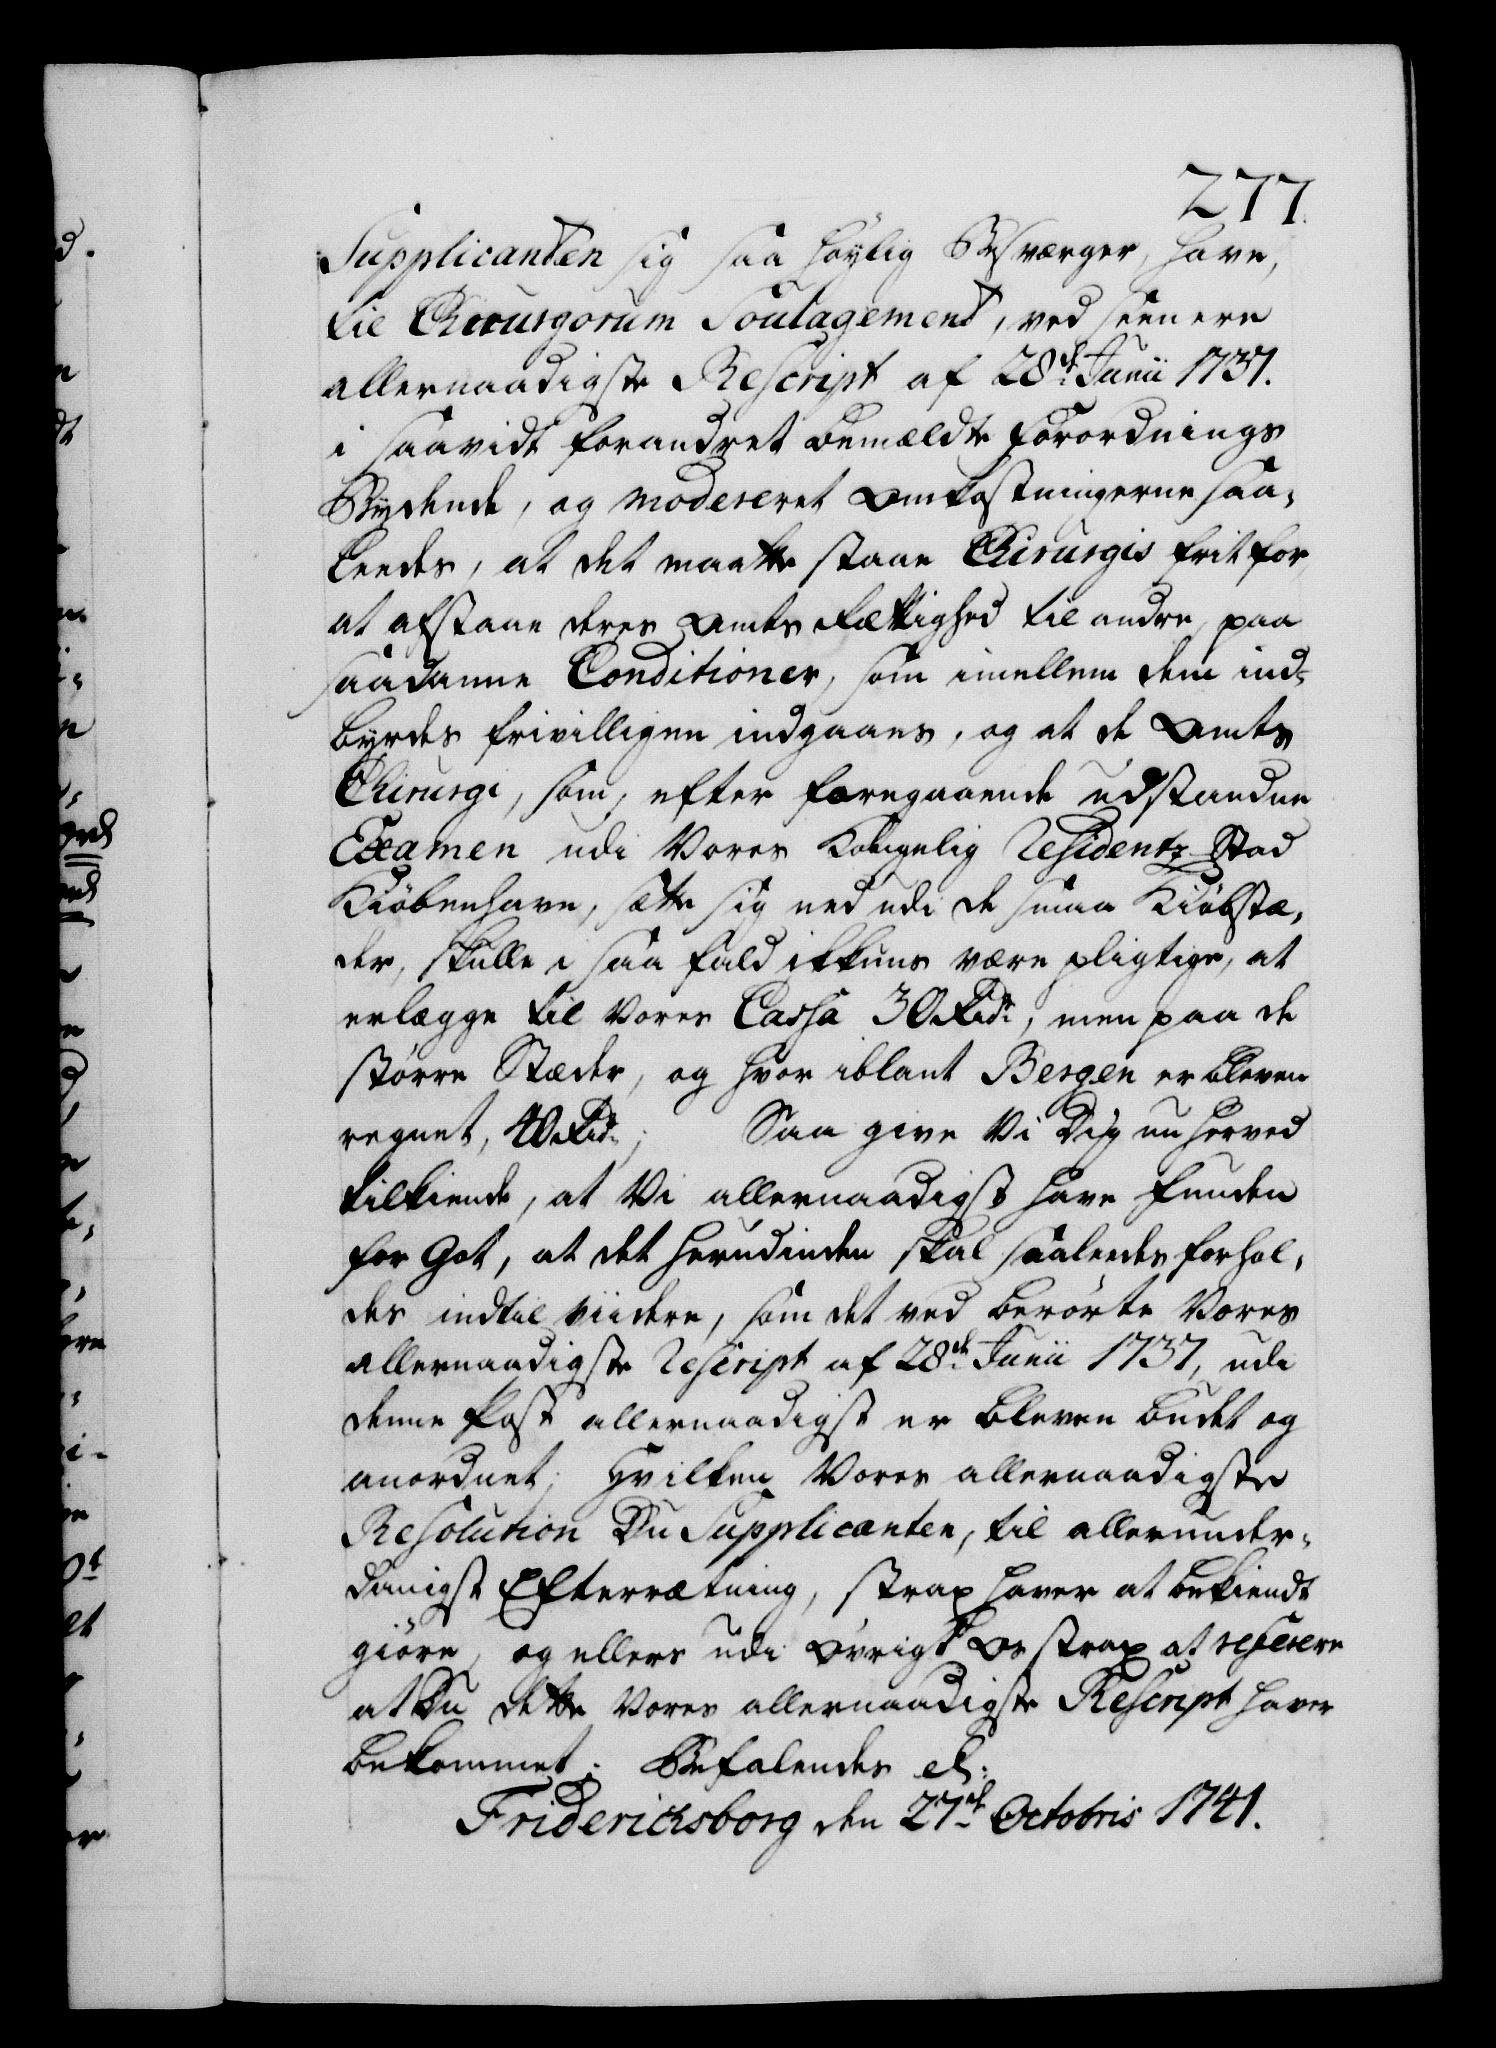 277.
Supplicanten sig saa høylig Besværger, have,
til Chirurgorum Soulagement, ved seenere
allernaadigste Rescript af 28de Junii 1737.
i saavidt forandret bemældte Forordnings
Bydende, og modereret Omkostningerne saa,
leedes, at det maatte staae Chirurgis frit for,
at afstaae deres Amts Rættighed til andre, paa
saadanne Conditioner, som imellem dem ind-
byrdes frivilligen indgaaes, og at de Amts
Chirurgi, som, efter foregaaende udstandne
Examen udi Vores Kongelig Residentz Stad
Kiøbenhavn, sætte sig ned udi de smaa Kiøbstæ,
der, skulle i saa fald ikkuns være pligtige, at
erlægge til Vores Cassa 30 Rdr, men paa de
større Stæder, og hvor iblant Bergen er bleven
regnet, 40 Rdr; Saa give Vi Dig nu herved
tilkiende, at Vi allernaadigst have funden
for Got, at det herudinden skal saaleedes forhol,
des indtil viidere, som det ved berørte Vores
allernaadigste Rescript af 28de Junii 1737, udi
denne Post allernaadigst er bleven budet og
anordnet; Hvilken Vores allernaadigste
Resolution Du Supplicanten, til allerunder,
danigst Efterrætning, strax haver at bekiendt
giøre, og ellers udi øvrigt Os strax at referere
at Du dette Vores allernaadigste Rescript haver
bekommet. Befalendes etc:
Friderichsborg den 27de Octobris 1741.